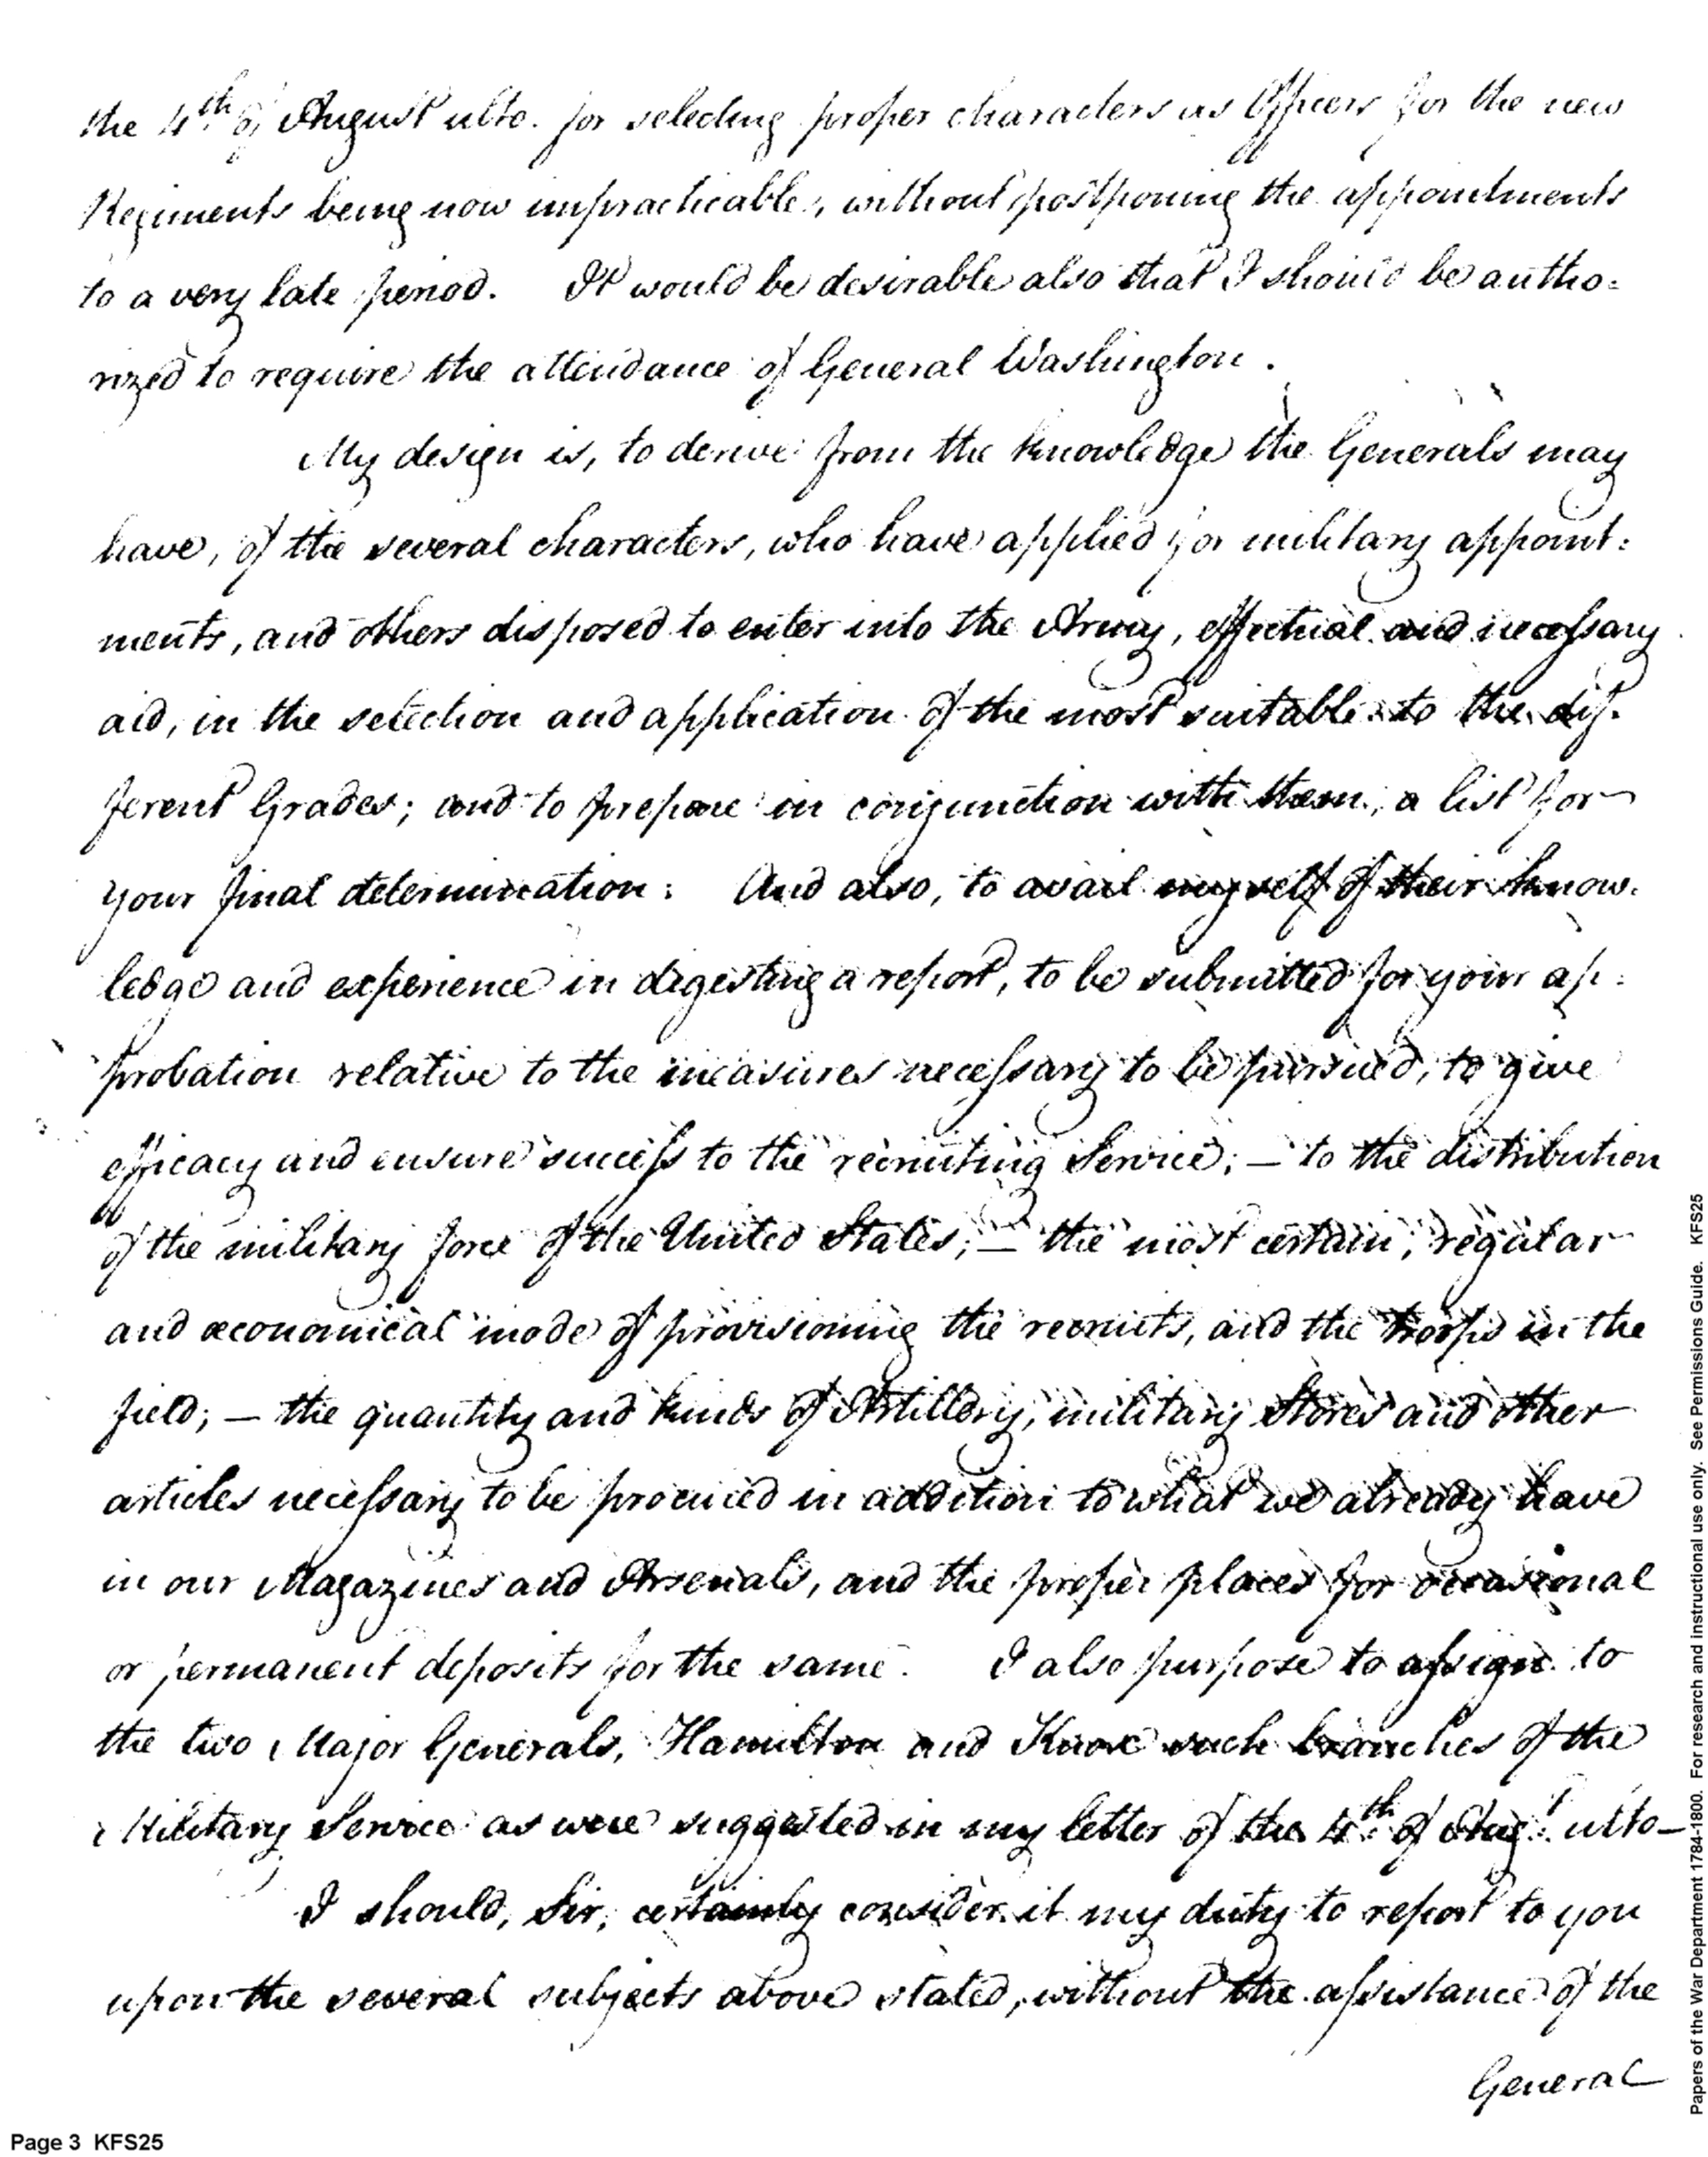 the 4th of August ulto. for selecting proper characters as Officers for the new
Regiments being now impracticable, without postponing the appointments
to a very late period. It would be desirable also that I should be autho:
rized to require the attendance of General Washington.
My design is, to derive from the knowledge the Generals may
have, of the several characters, who have applied for military appoint:
ments, and others disposed to enter into the Army, effectual and necessary
aid, in the selection and application of the most suitable to the dif.
ferent Grades; and to prepare in conjunction with them, a list for
your final determination: And also, to avail myself of their know.
ledge and experience in digesting a report, to be submitted for your ap:
probation relative to the measures necessary to be pursued, to give
efficacy and ensure success to the recruiting Service; — to the distribution
of the military force of the United States; — the most certain, regular
and œconomical mode of provisioning the recruits, and the troops in the
field; — the quantity and kinds of Artillery, military Stores and other
articles necessary to be procured in addition to what we already have
in our Magazines and Arsenals, and the proper places for occasional
or permanent deposits for the same. I also purpose to assign to
the two Major Generals, Hamilton and Knox such branches of the
Military Service as were suggested in my letter of the 4th of Augt. ulto —
I should, Sir, certainly consider it my duty to report to you
upon the several subjects above stated, without the assistance of the
General
Page 3 KFS25
Papers of the War Department 1784-1800. For research and instructional use only. See Permissions Guide. KFS25